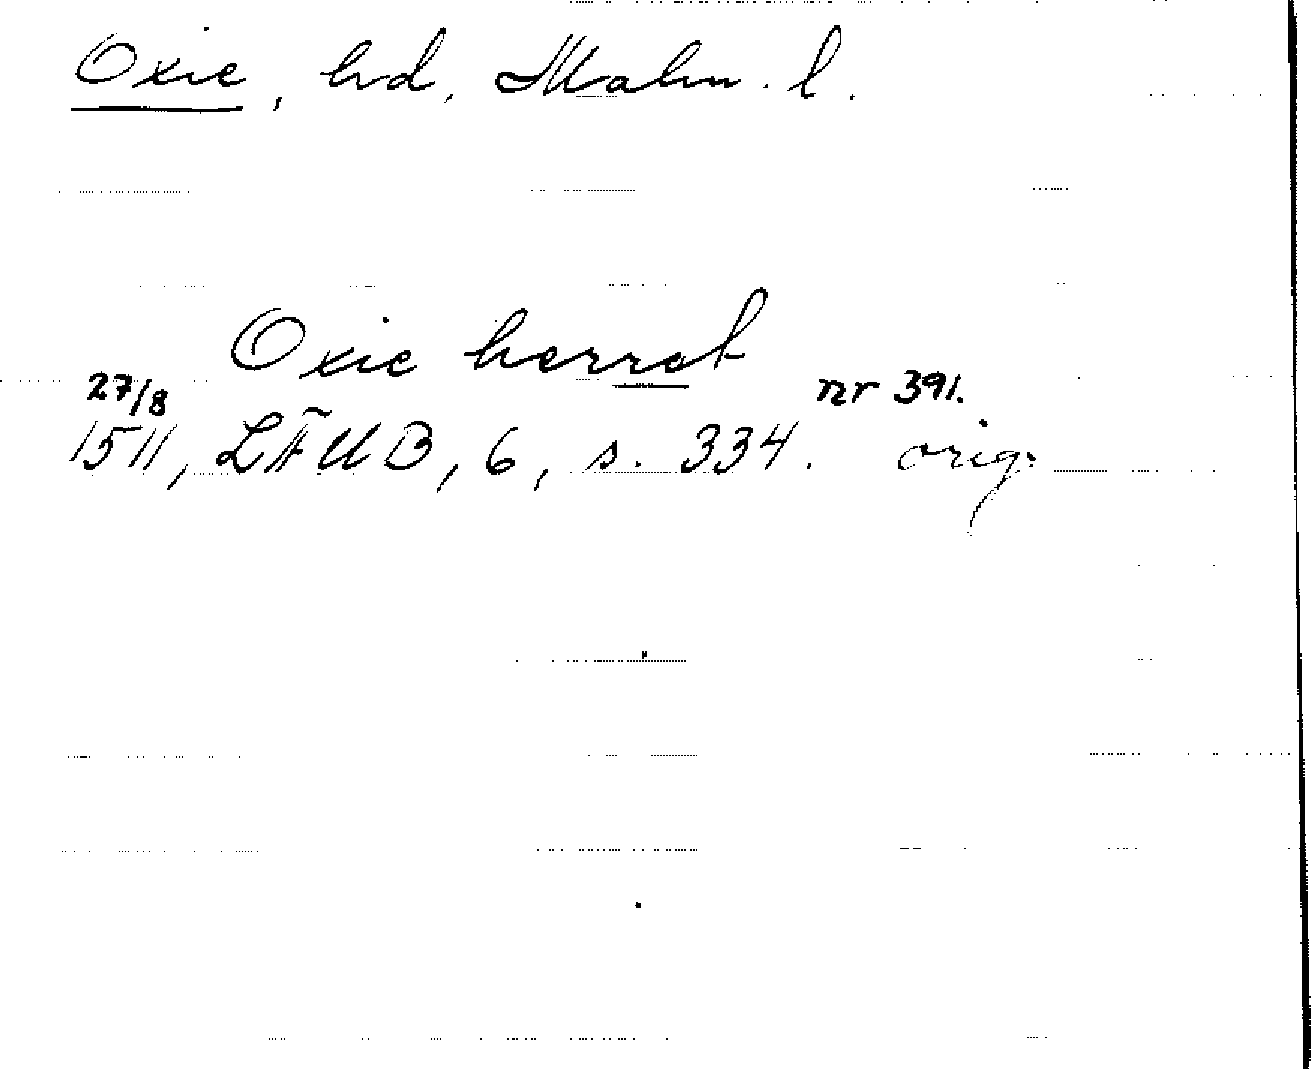 Oxie, hd, Malm. l.
Oxie herrat
27/8 nr 391.
1511, LÄUB, 6, s. 334. orig.